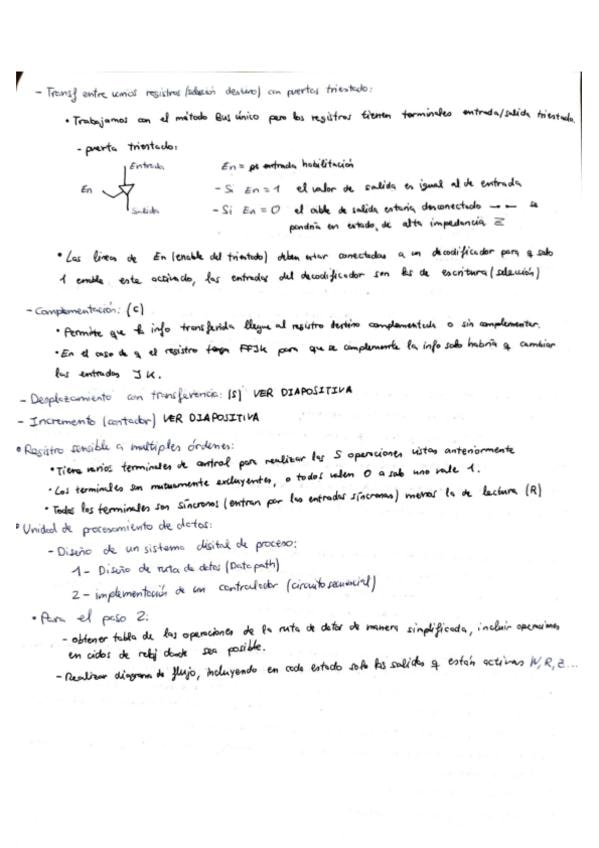 - Transf entre varios registros (selección destino) con puertas triestado:
• Trabajamos con el método Bus único pero los registros tienen terminales entrada/salida triestado.
- puerta triestado:
Entrada
En
Salida
En = entrada habilitación
- Si En = 1 el valor de salida es igual al de entrada
- Si En = 0 el cable de salida estaría desconectado → ← se
pondría en estado, de alta impedancia Z
• Las líneas de En (enable del triestado) deben estar conectadas a un decodificador para q solo
1 enable este activado, las entradas del decodificador son las de escritura (selección)
- Complementación: (C)
• Permite que la info transferida llegue al registro destino complementada o sin complementar.
• En el caso de q el registro tenga FFJK para que se complemente la info solo habría q cambiar
las entradas J K.
- Desplazamiento con transferencia: (S) VER DIAPOSITIVA
- Incremento (contador) VER DIAPOSITIVA
• Registro sensible a multiples órdenes:
• Tiene varios terminales de control para realizar las 5 operaciones vistas anteriormente
• Los terminales son mutuamente excluyentes, o todos valen 0 o solo uno vale 1.
• Todos los terminales son síncronos (entran por las entradas síncronas) menos la de lectura (R)
• Unidad de procesamiento de datos:
- Diseño de un sistema digital de proceso:
1- Diseño de ruta de datos (Data path)
2- implementación de un controlador (circuito secuencial)
• Para el paso 2:
- obtener tabla de las operaciones de la ruta de datos de manera simplificada, incluir operaciones
en ciclos de reloj donde sea posible.
- Realizar diagrama de flujo, incluyendo en cada estado solo las salidas q están activas W, R, Z...